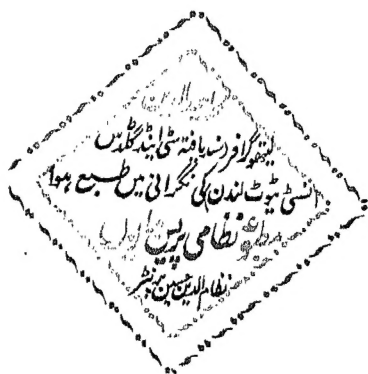 لیتھوگرافر سند یافتہ سٹی اینڈ گلڈس
انسٹی ٹیوٹ لندن کی نگرانی میں طبع ہوا
نظامی پریس
نظام الدین حسین پرنٹر